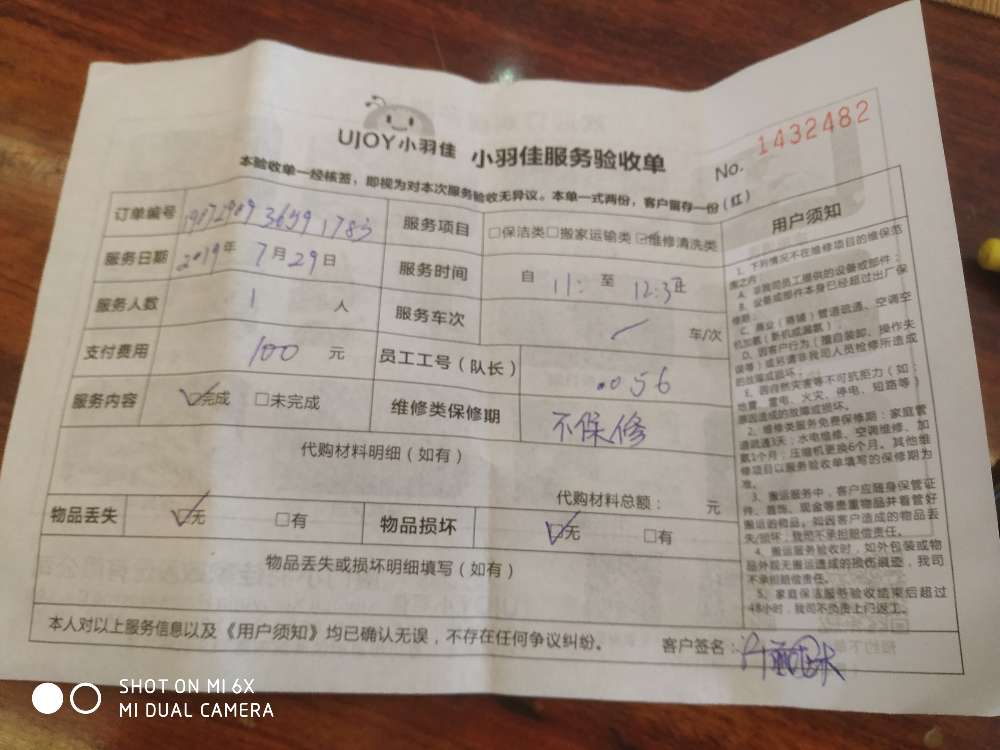 UJOY小羽佳 小羽佳服务验收单
No. 1432482
本验收单一经核签，即视为对本次服务验收无异议。本单一式两份，客户留存一份（红）
订单编号 服务项目 □保洁类□搬家运输类☑维修清洗类
服务日期 2019年7月29日 服务时间 自 11: 至 12:3
服务人数 1 人 服务车次 车/次
支付费用 100 元 员工工号（队长） 0056
服务内容 ☑完成 □未完成 维修类保修期 不保修
代购材料明细（如有）
代购材料总额： 元
物品丢失 ☑无 □有 物品损坏 ☑无 □有
物品丢失或损坏明细填写（如有）
本人对以上服务信息以及《用户须知》均已确认无误，不存在任何争议纠纷。 客户签名：
用户须知
1、下列情况不在维修项目的维保范
围之内：
A、非我司员工提供的设备或部件；
B、设备或部件本身已经超过出厂保
修期；
C、商业（商铺）管道疏通、空调空
机加氟（新机或漏氟）；
D、因客户行为（擅自装卸、操作失
误等）或另请非我司人员检修所造成
的故障或损坏；
E、因自然灾害等不可抗拒力（如：
地震、雷电、火灾、停电、短路等）
原因造成的故障或损坏。
2、维修类服务免费保修期：家庭管
道疏通3天；水电维修、空调维修、加
氟1个月；压缩机更换6个月。其他维
修项目以服务验收单填写的保修期为
准。
3、搬运服务中，客户应随身保管证
件、首饰、现金等贵重物品并看管好
搬运的物品。如因客户造成的物品丢
失/损坏，我司不承担赔偿责任。
4、搬运服务验收时，如外包装或物
品外观无搬运造成的损伤痕迹，我司
不承担赔偿责任。
5、家庭保洁服务验收结束后超过
48小时，我司不负责上门返工。
SHOT ON MI 6X
MI DUAL CAMERA